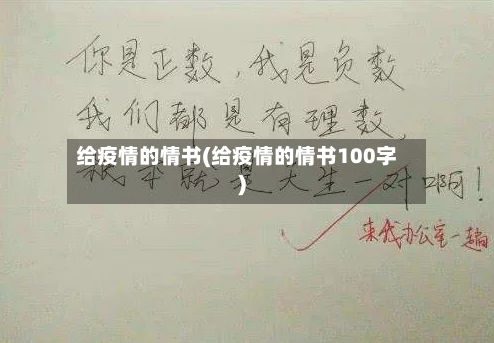 你是正数,我是负数
我们都是有理数,
给疫情的情书(给疫情的情书100字
)
就是天生一对啊!
来我办公室一趟